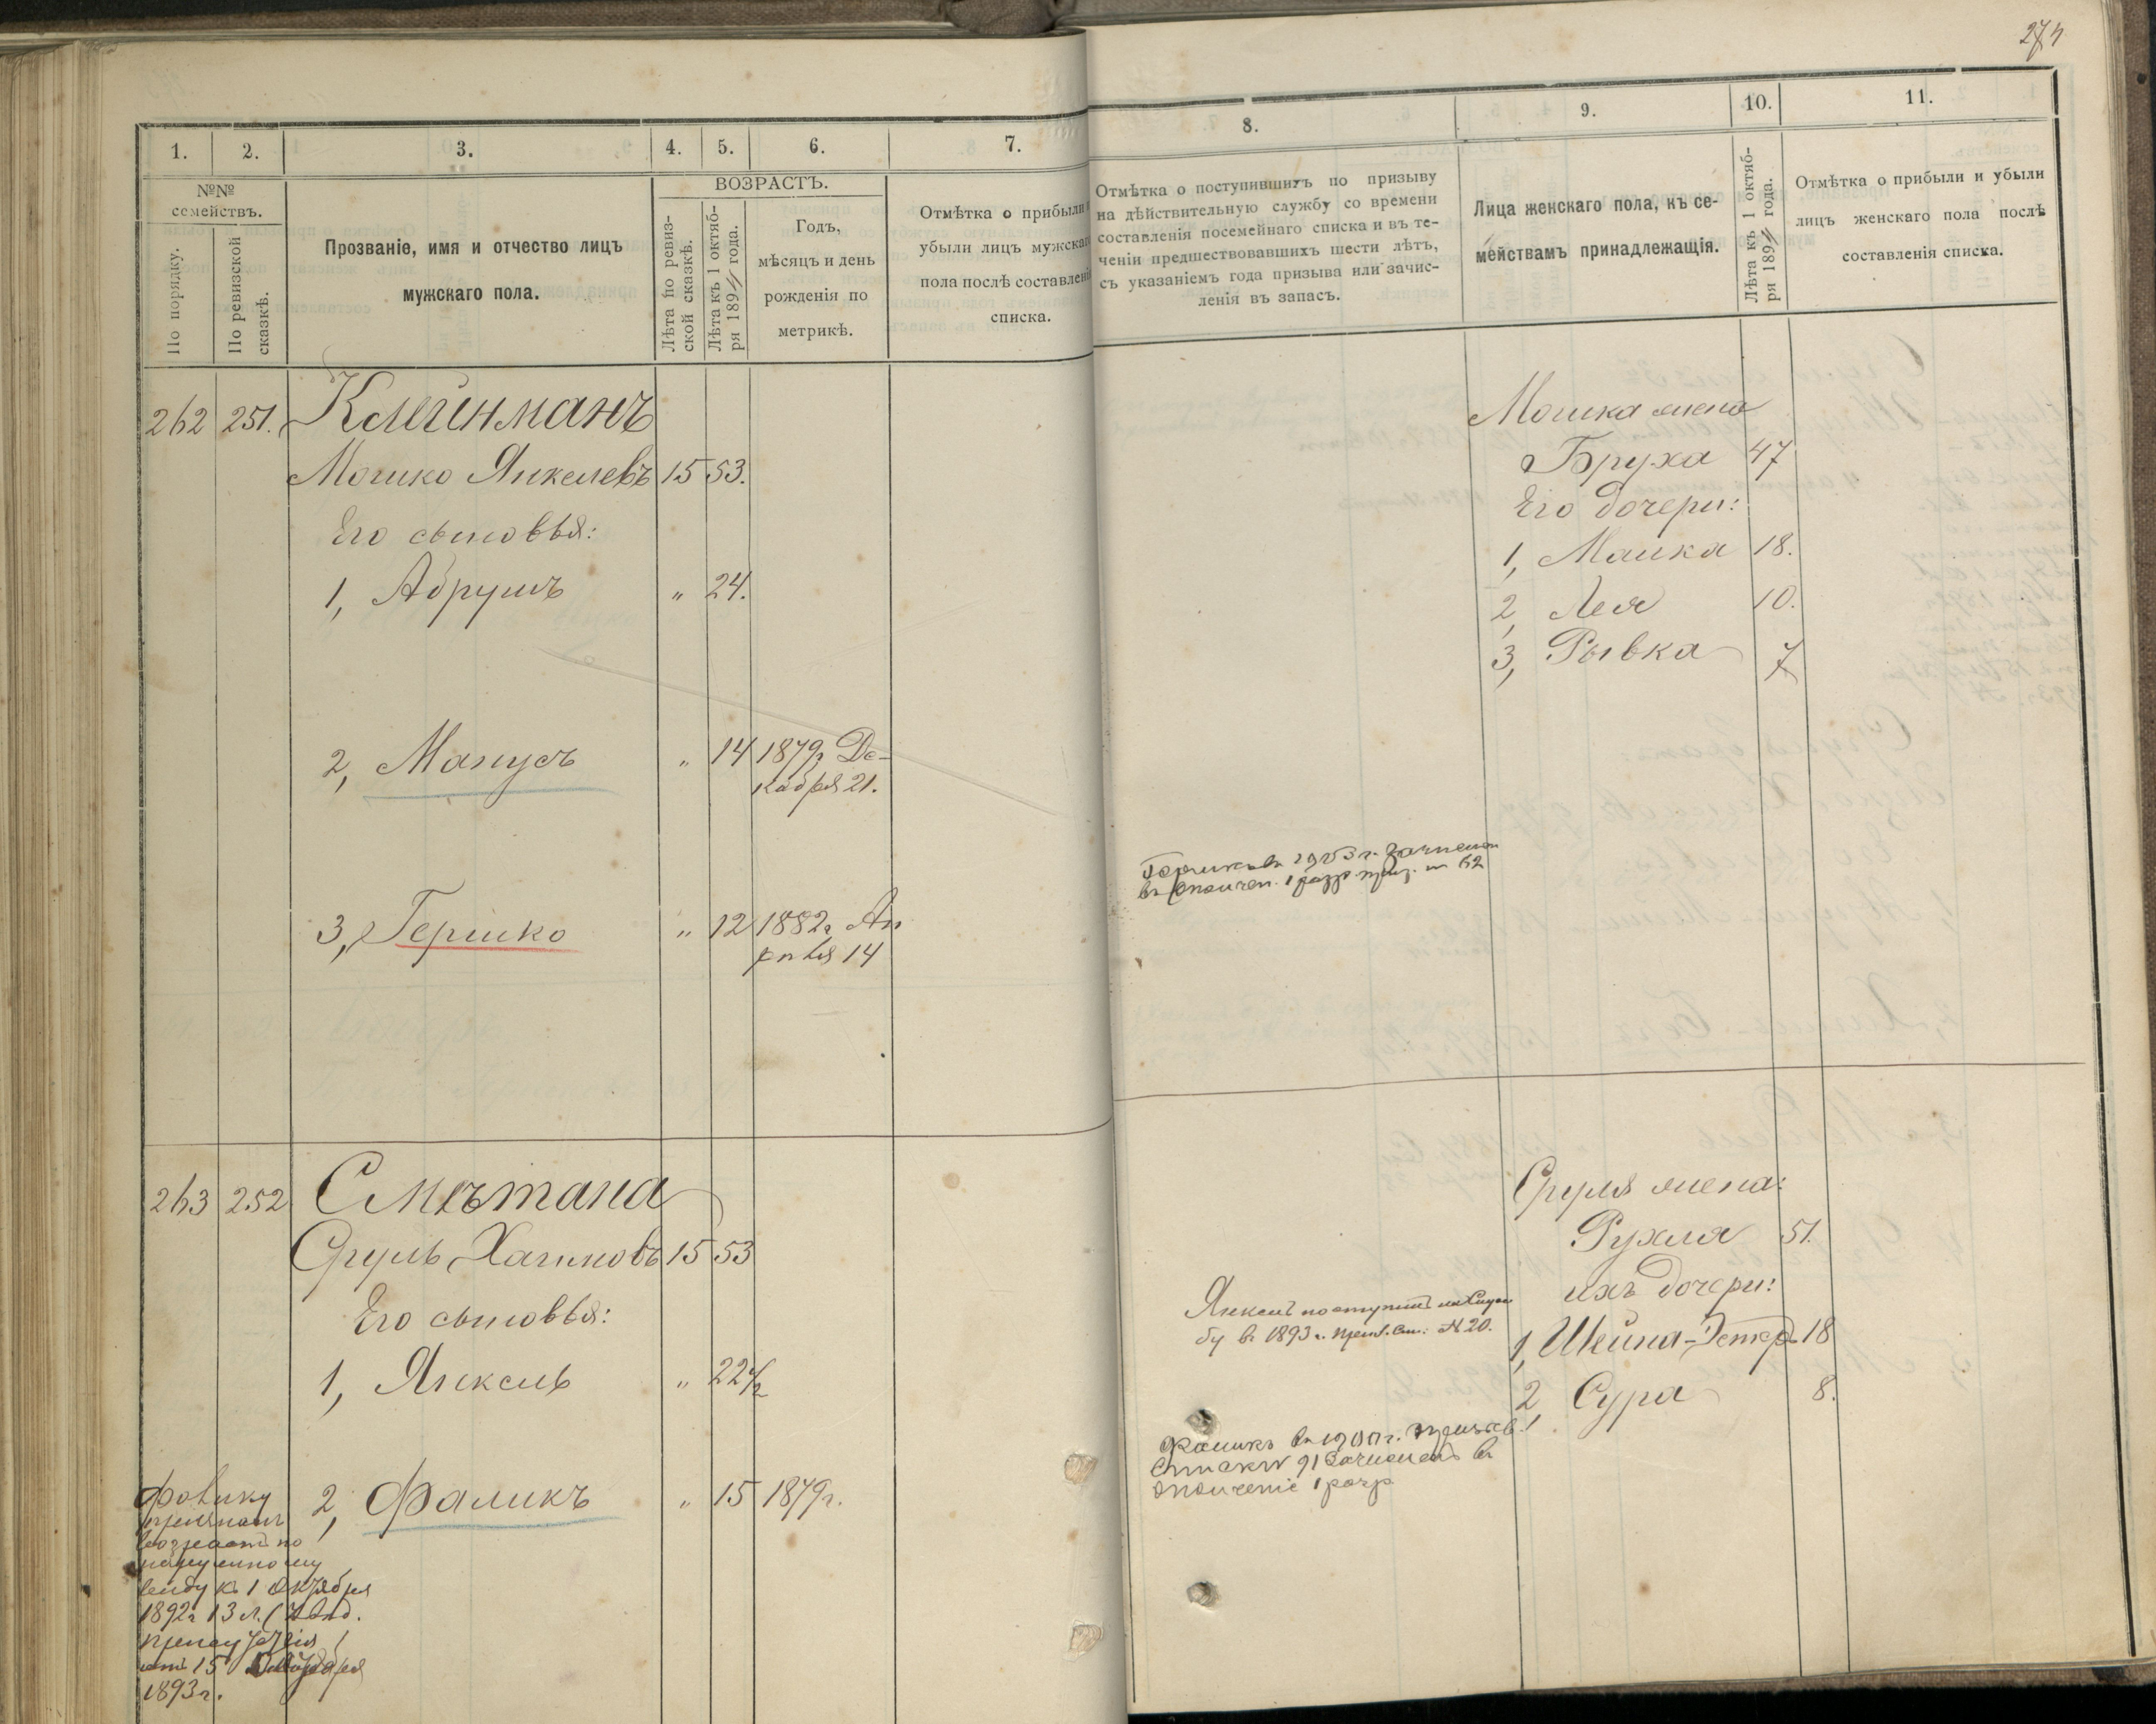 274
1.
2.
3.
4.
5.
6.
7.
8.
9.
10.
11.
№№
семействъ.
По порядку.
По ревизской
сказкѣ.
Прозваніе, имя и отчество лицъ
мужскаго пола.
ВОЗРАСТЪ.
Лѣта по ревиз-
ской сказкѣ.
Лѣта къ 1 октяб-
ря 1894 года.
Годъ,
мѣсяцъ и день
рожденія по
метрикѣ.
Отмѣтка о прибыли и
убыли лицъ мужскаго
пола послѣ составленія
списка.
Отмѣтка о поступившихъ по призыву
на дѣйствительную службу со времени
составленія посемейнаго списка и въ те-
ченіи предшествовавшихъ шести лѣтъ,
съ указаніемъ года призыва или зачис-
ленія въ запасъ.
Лица женскаго пола, къ се-
мействамъ принадлежащія.
Лѣта къ 1 октяб-
ря 1894 года.
Отмѣтка о прибыли и убыли
лицъ женскаго пола послѣ
составленія списка.
262 251. Клейнманъ
Мошко Янкелевъ 15 53.
Его сыновья:
1, Абрумъ " 24.
2, Манусъ " 14 1879г Де-
кабря 21.
3, Гершко " 12 1882г Ап
рѣля 14
Мошка жена
Бруха 47
Его дочери:
1, Малка 18.
2, Лея 10.
3, Рывка 7
Гершко въ 1903 г. зачисленъ
въ ополчен. 1 разр. приз. 62
263 252 Смѣтана
Сруль Хаимовъ 15 53
Его сыновья:
1, Янкель " 22 1/2
2, Фаликъ " 15 1879г.
Сруля жена:
Рухля 51.
ихъ дочери:
1, Шейна-Эстер 18
2, Сура 8.
Янкель поступилъ на служ
бу въ 1893 г. приз. сп. № 20.
Фаликъ въ 1900 г. призыв.
списки 91 зачисленъ въ
ополченіе 1 разр.
Фалику
признанъ
возрастъ по
наружному
виду къ 1 Октября
1892г 13 л.
присутствія
отъ 15
1893г.